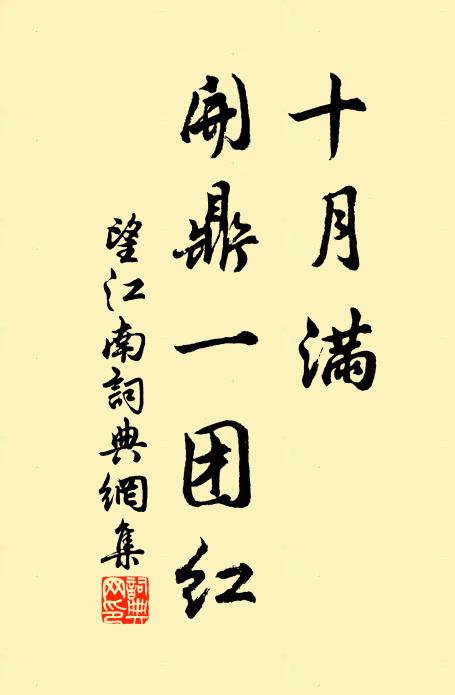 十月满
开鼎一团红
望江南詞典網集
詞典
网印